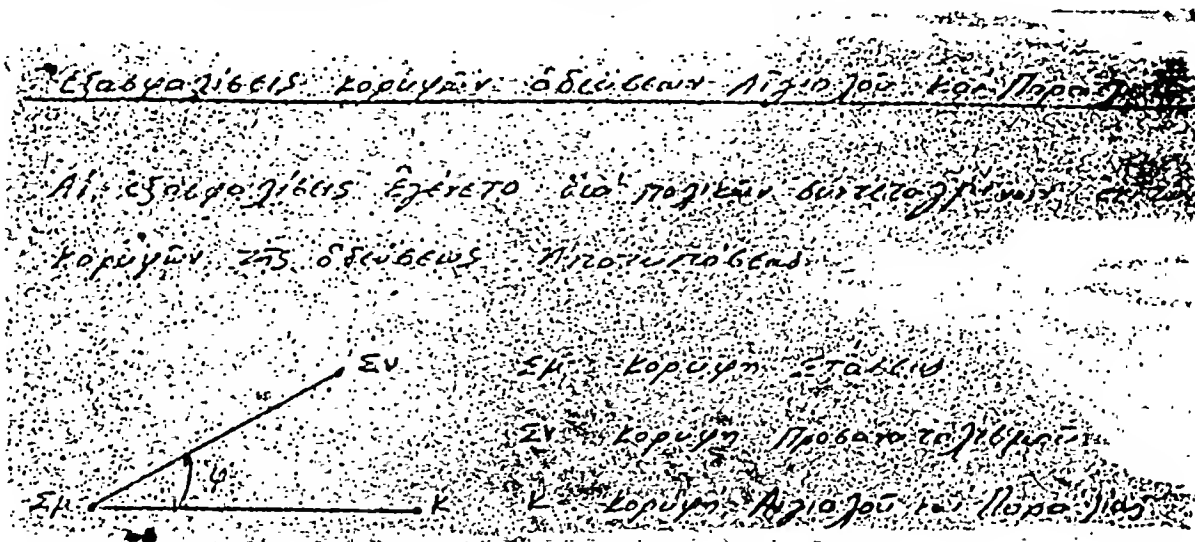 Ἐξασφαλίσεις κορυφῶν ὁδεύσεων Αἰγιαλοῦ καὶ
Αἱ ἐξασφαλίσεις ἐγένετο διὰ πολικῶν συντεταγμένων
κορυφῶν τῆς ὁδεύσεως Ἀποτυπώσεως
Σν Σμ Κορυφὴ Στάσεως
Σν Κορυφὴ
φ
Σμ Κ Κ Κορυφὴ Αἰγιαλοῦ καὶ Παραλίας